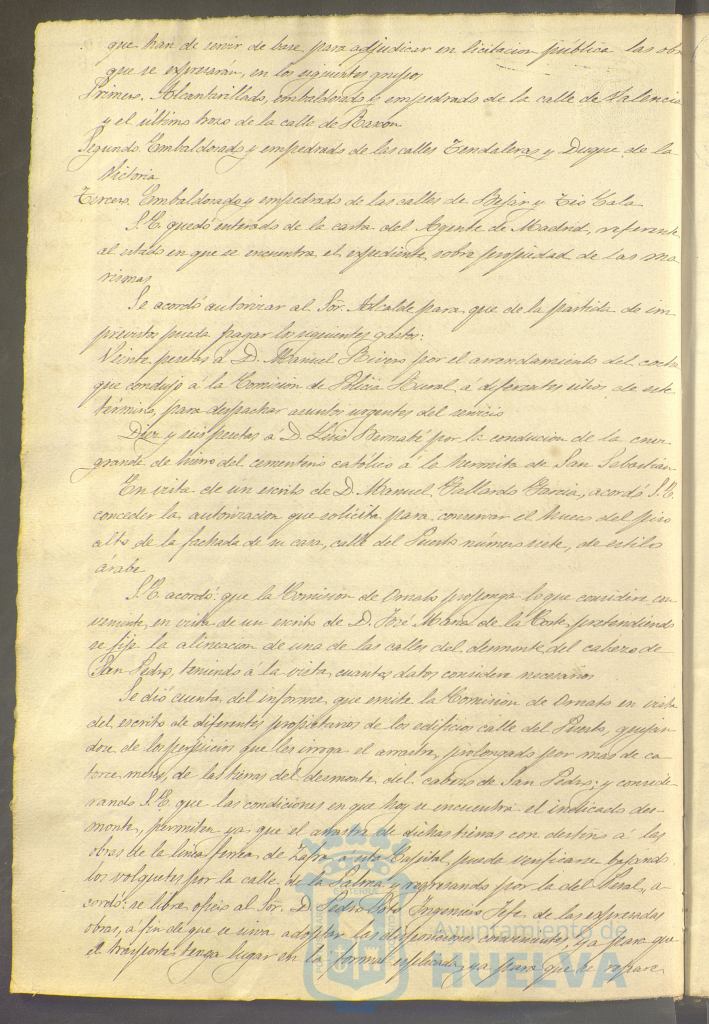 que han de servir de base para adjudicar en licitacion pública las ob
que se expresarán, en los siguientes grupos
Primero. Alcantarillado, embaldosado y empedrado de la calle de Valencia
y el último trozo de la calle de Rascon
Segundo Embaldosado y empedrado de las calles Tendaleras y Duque de la
Victoria
Tercero. Embaldosado y empedrado de las calles de Bejar y Tio Cala
S.E. quedó enterado de la carta del Agente de Madrid, referente
al estado en que se encuentra el expediente sobre propiedad de las ma
rismas
Se acordó autorizar al Sor. Alcalde para que de la partida de im
previstos pueda pagar los siguientes gastos:
Veinte pesetas á D. Manuel Rivero por el arrendamiento del coche
que condujo á la Comision de Policia Rural a diferentes sitios de este
término, para despachar asuntos urgentes del servicio
Diez y seis pesetas á D. Luis Bernabé por la conducion de la cruz
grande de hierro del cementerio católico á la hermita de San Sebastian
En vista de un escrito de D. Manuel Gallardo Garcia, acordó S.E.
conceder la autorizacion que solicita para conservar el hueco del piso
alto de la fachada de su casa, calle del Puerto número siete, de estilo
árabe
S.E. acordó: que la Comision de Ornato proponga lo que considere con
veniente, en vista de un escrito de D. José Maria de la Corte, pretendiendo
se fije la alineacion de una de las calles del desmonte del cabezo de
San Pedro, teniendo á la vista cuantos datos considere necesarios
Se dió cuenta del informe, que emite la Comision de Ornato en vista
del escrito de diferentes propietarios de los edificios calle del Puerto, quejan
dose de los perjuicios que les irroga el arrastre, prolongado por mas de ca
torce meses, de las tierras del desmonte del cabezo de San Pedro; y conside
rando S.E. que las condiciones en que hoy se encuentra el indicado des
monte, permiten ya que el arrastre de dichas tierras con destino a las
obras de la linea ferrea de Zafra a esta Capital, pueda verificarse bajando
los volquetes por la calle de la Palma y regresando por la del Peral, a
cordó: se libre oficio al Sor. D. Pedro Ingeniero Jefe de las expresadas
obras, a fin de que se sirva adoptar las disposiciones convenientes, ya para que
el trasporte tenga lugar en la forma esplicada, ya para que se repare
Ayuntamiento de
HUELVA